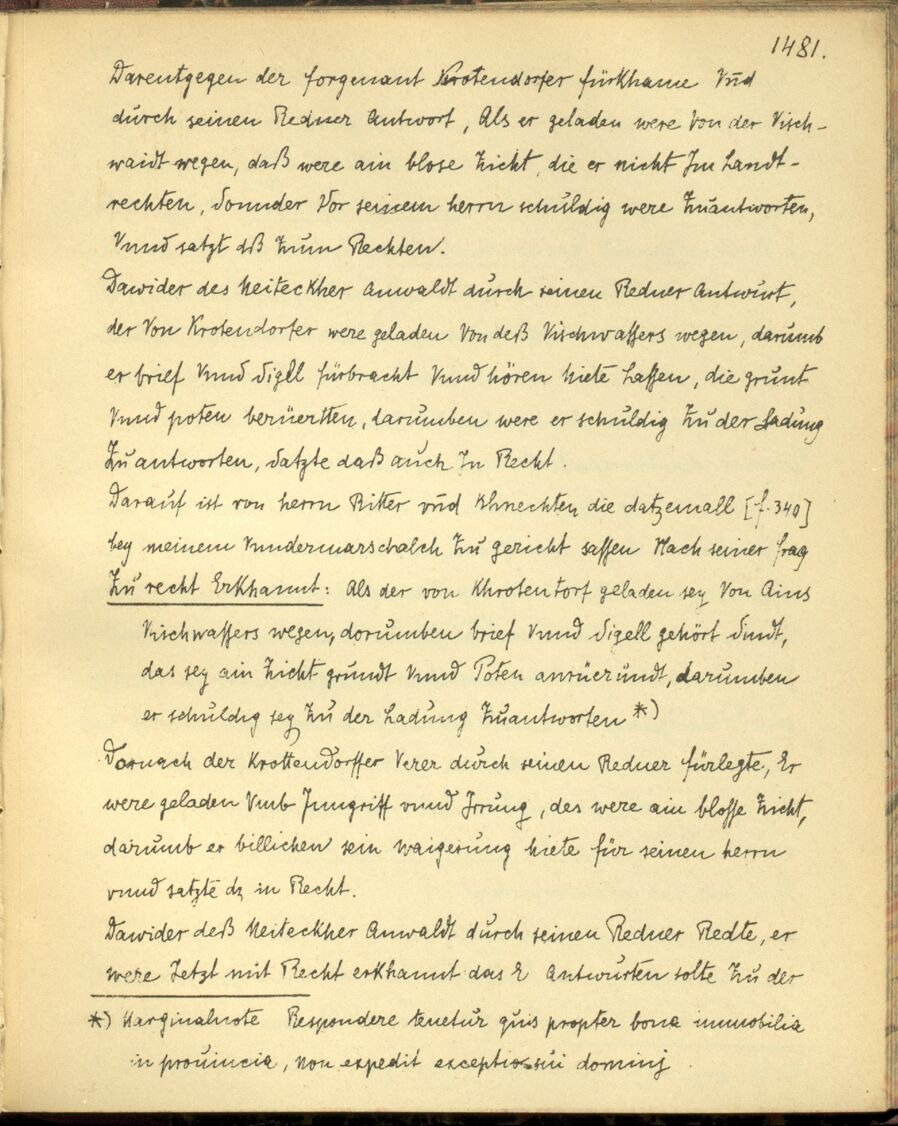 1481.
Darentgegen der forgenant Krotendorfer fürkhame Vnd
durch seinen Redner Antwort, Als er geladen were Von der Visch-
waidt wegen, daß were ain blose Zicht, die er nicht Im Landt-
rechten, Sonnder Vor seinem herrn schuldig were Zuantworten,
Vnnd satzt dß Zum Rechten.
Dawider des Neiteckher Anwaldt durch seinen Redner Antwurt,
der Von Krotendorfer were geladen Von deß Vischwassers wegen, darumb
er brief Vnnd Sigell fürbracht Vnnd hören hiete Lassen, die grunt
Vnnd poten berüertten, darumben were er schuldig Zu der Ladung
Zu antworten, Satzte daß auch In Recht.
Darauf ist von herrn Ritter vnd Khnechten die datzemall [f. 340]
bey meinem Vnndermarschalch Zu gericht sassen Nach seiner frag
Zu recht Erkhannt: Als der von Khrotentorf geladen sey Von Ains
Vischwassers wegen, dorumben brief Vnnd Sigell gehört Sindt,
das sey ain Zicht grundt Vnnd Poten anrüerundt, darumben
er schuldig sey Zu der Ladung Zuantworten *)
Dornach der Krottendorffer Verer durch seinen Redner fürlegte, Er
were geladen Vmb Inngriff vnnd Irrung, des were ain blosse Zicht,
darumb er billichen sein waigerung hiete für seinen herrn
vnnd satzte dz in Recht.
Dawider deß Neiteckher Anwaldt durch seinen Redner Redte, er
were Jetzt mit Recht erkhannt das E Antwurten solte Zu der
*) Marginalnote Respondere tenetur quis propter bona immobilia
in prouincia, non expedit exceptio sui dominj